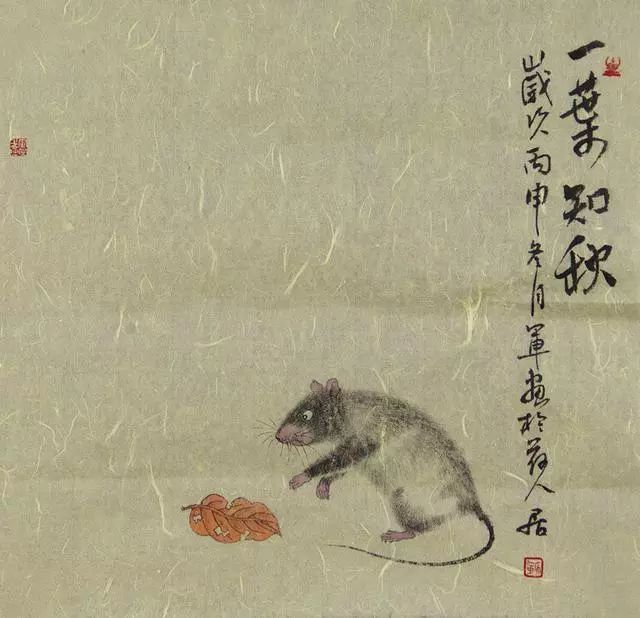 一葉知秋
歲次丙申冬月軍畫於荷人居